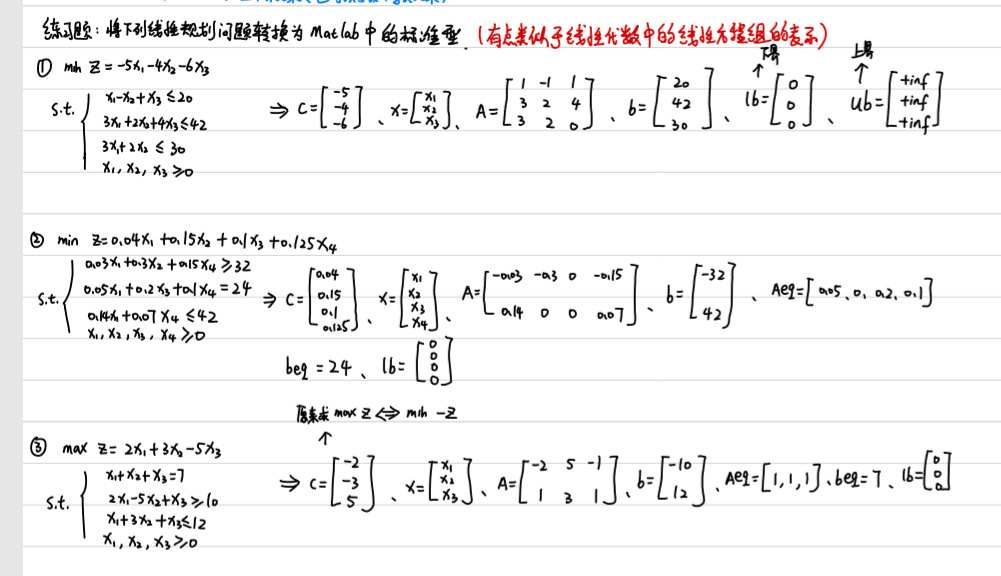 练习题：将下列线性规划问题转换为Matlab中的标准型.（有点类似于线性代数中的线性方程组的表示）
下界 上界
① min Z=-5x₁-4x₂-6x₃
s.t. { x₁-x₂+x₃≤20
3x₁+2x₂+4x₃≤42
3x₁+2x₂≤30
x₁,x₂,x₃≥0
⇒ C=[-5 -4 -6]、x=[x₁ x₂ x₃]、A=[1 -1 1; 3 2 4; 3 2 0]、b=[20 42 30]、lb=[0 0 0]、ub=[+inf +inf +inf]
② min Z=0.04x₁+0.15x₂+0.1x₃+0.125x₄
s.t. { 0.03x₁+0.3x₂+0.15x₄≥32
0.05x₁+0.2x₃+0.1x₄=24
0.14x₁+0.07x₄≤42
x₁,x₂,x₃,x₄≥0
⇒ C=[0.04 0.15 0.1 0.125]、x=[x₁ x₂ x₃ x₄]、A=[-0.03 -0.3 0 -0.15; 0.14 0 0 0.07]、b=[-32 42]、Aeq=[0.05,0,0.2,0.1]
beq=24、lb=[0 0 0 0]
原来求max Z⇔min -Z
③ max Z=2x₁+3x₂-5x₃
s.t. { x₁+x₂+x₃=7
2x₁-5x₂+x₃≥10
x₁+3x₂+x₃≤12
x₁,x₂,x₃≥0
⇒ C=[-2 -3 5]、x=[x₁ x₂ x₃]、A=[-2 5 -1; 1 3 1]、b=[-10 12]、Aeq=[1,1,1]、beq=7、lb=[0 0 0]